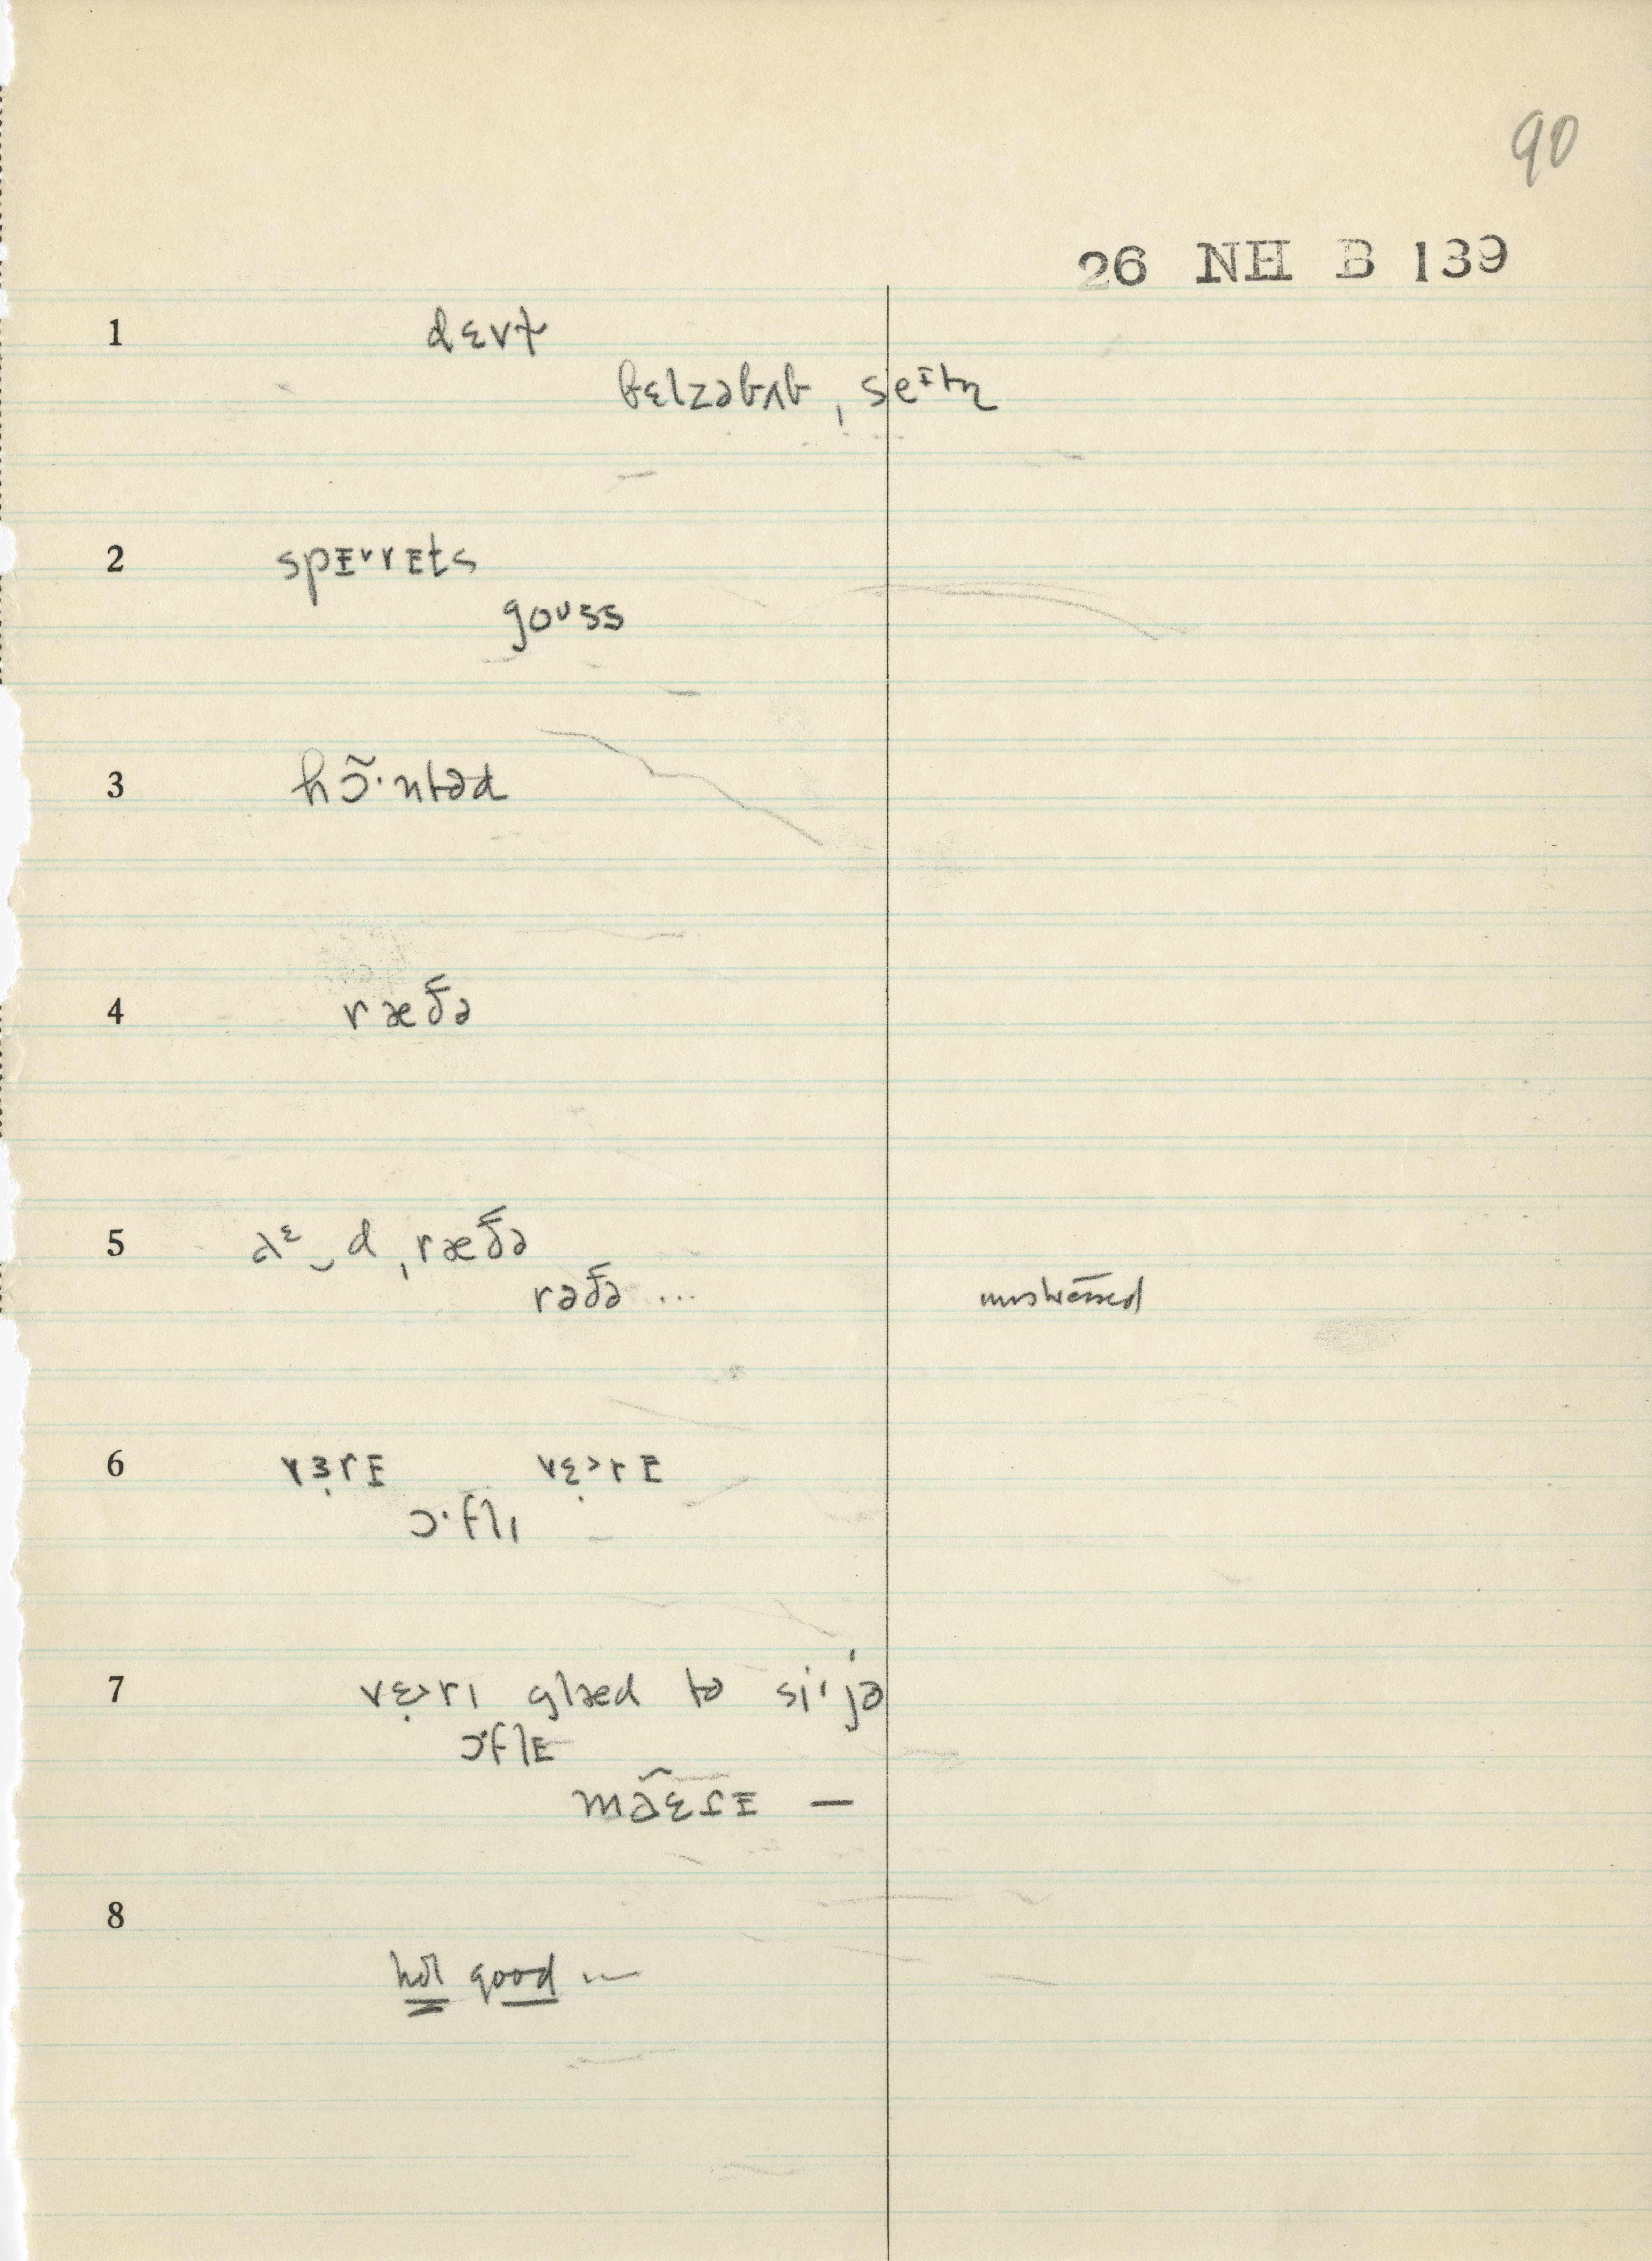 90
26 NH B 139
1 dɛvɫ
bɛlzəbʌb, seᶦtn̩
2 spᴇᵛrᴇts
goᴜss
3 hɔ̃·ntəd
4 ræðə
5 ə ᵋ‿d ˌræðə
rəðə ... unstressed
6 vɜ̣rᴇ vɛ̣>rᴇ
ɔ·flɪ
7 vɛ̣>rɪ glæd tə si·'jə
ɔ·flᴇ
—
8
good